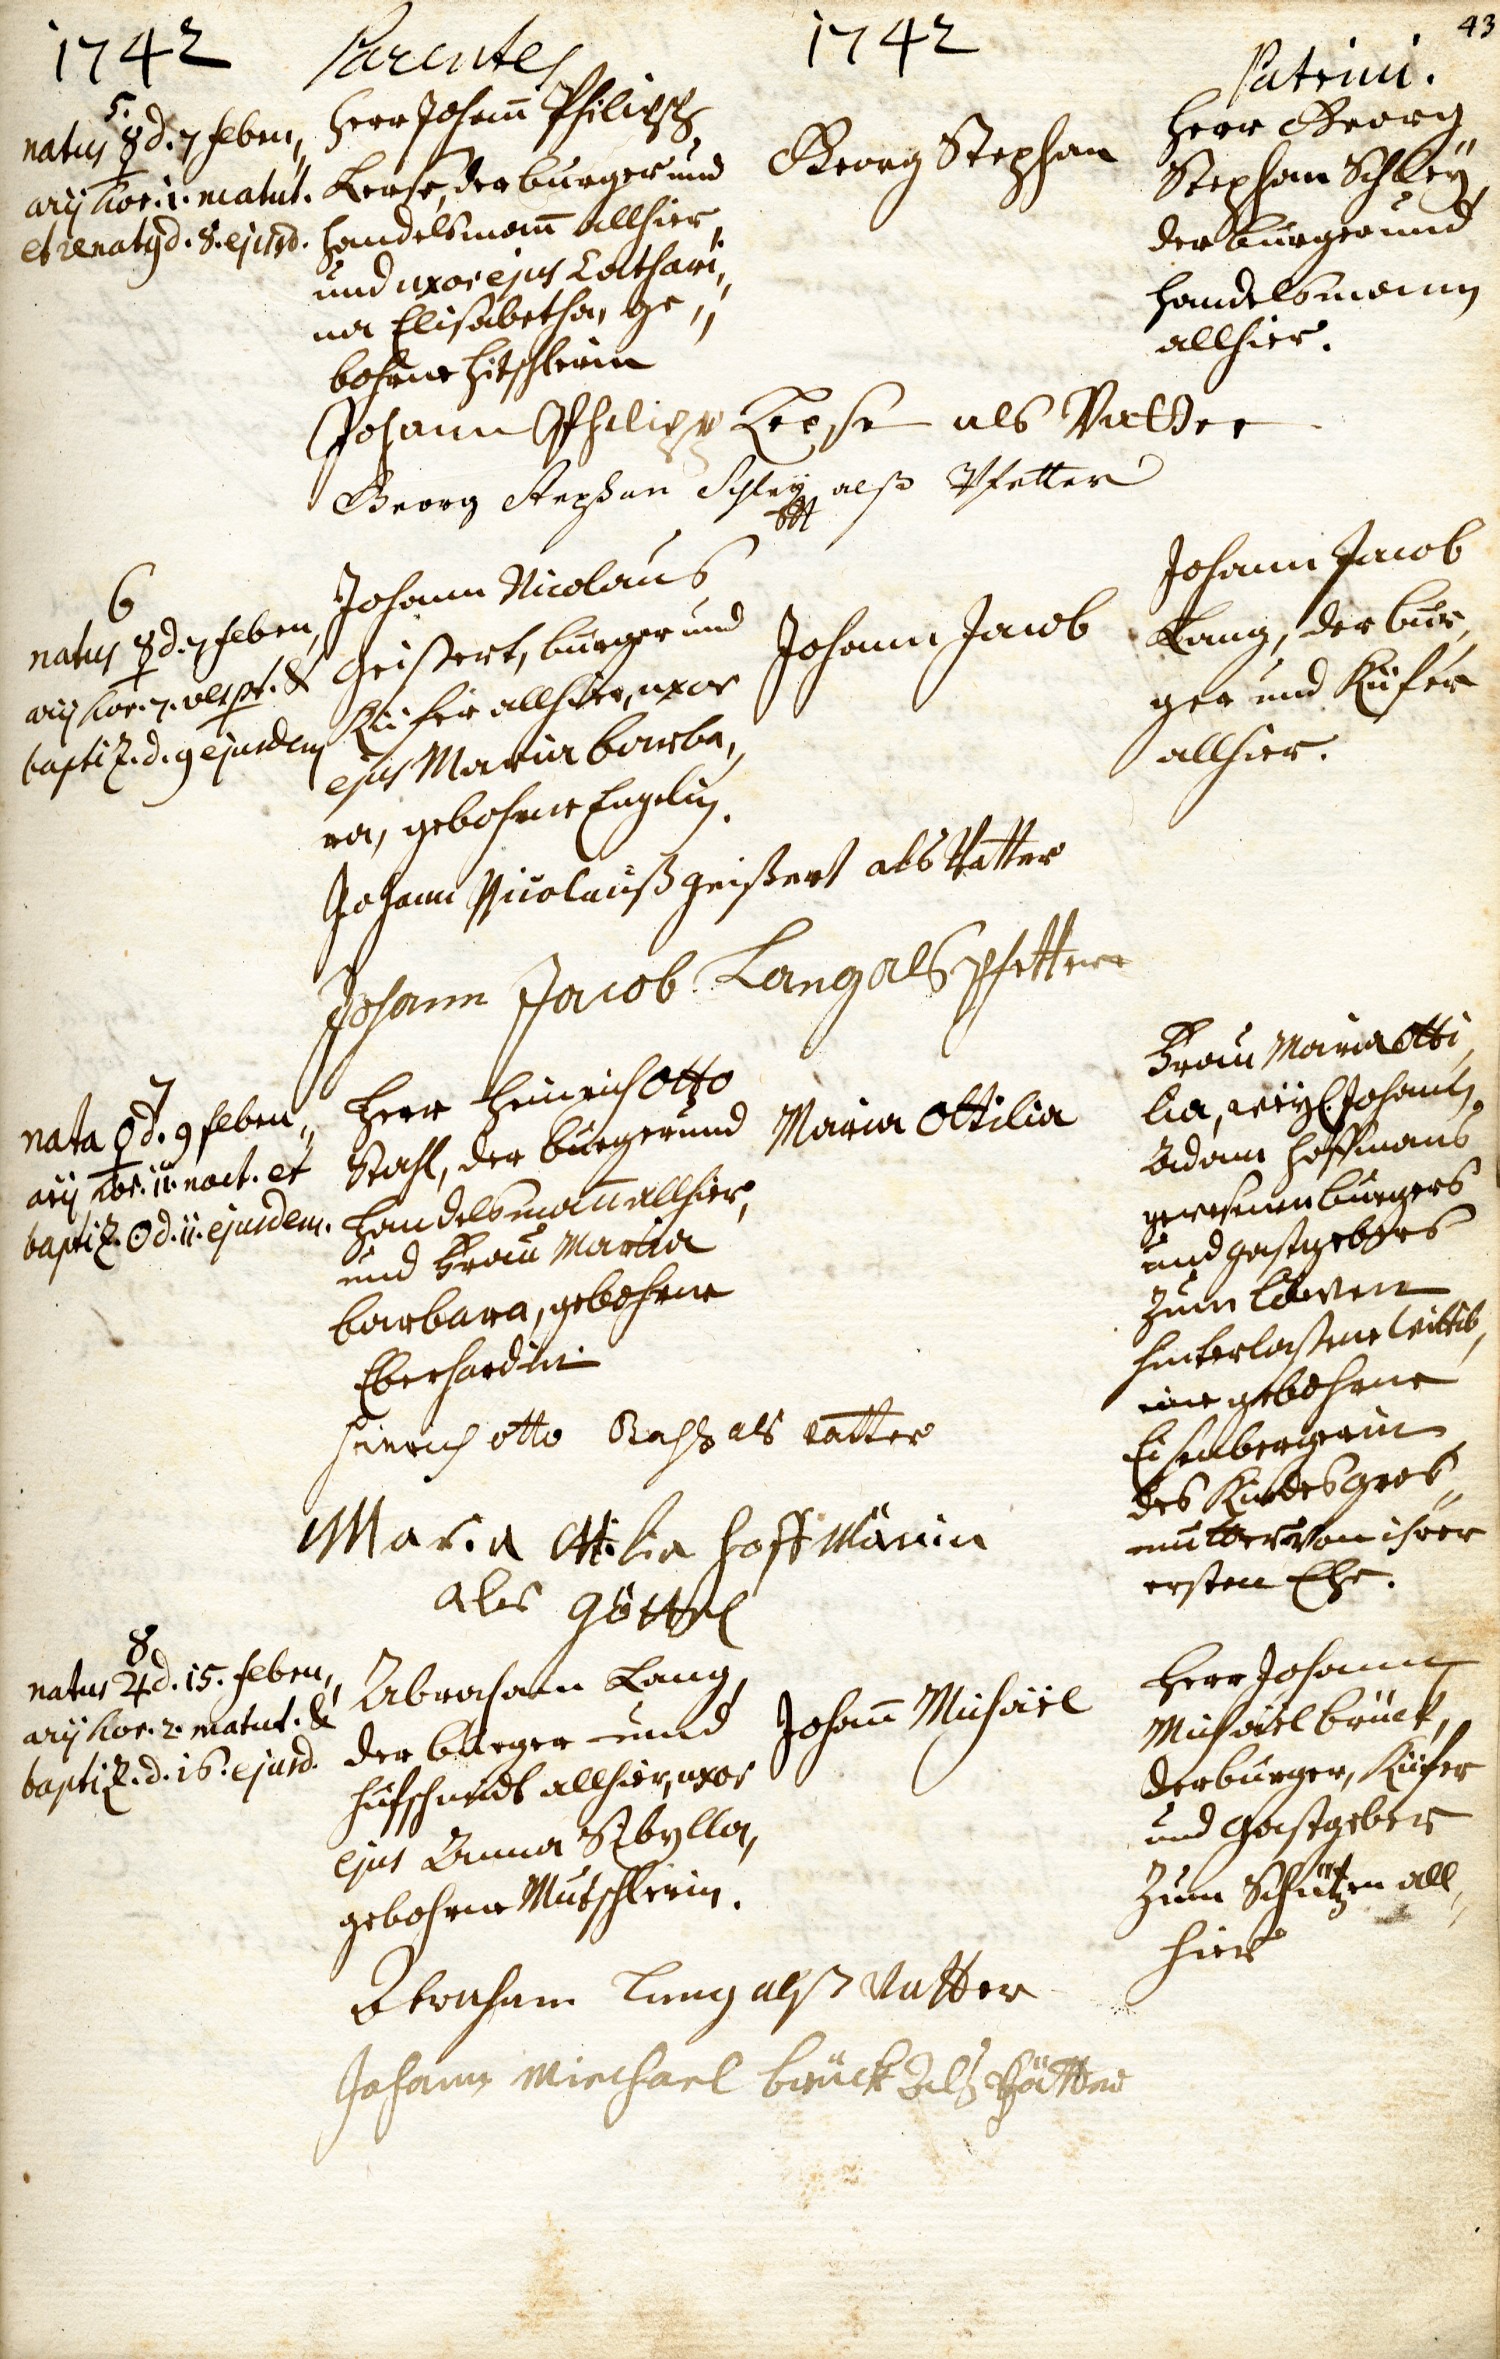 43
1742 Parentes 1742 Patrini.
5.
natus ☿ d. 7 Febru„
arij hor. 1. matut.
et renatg d. 8. ejusd.
Herr Johan̄ Philipp
Lerse, der burger und
handelsman̄ allhier,
und uxor ejus Cathari„
na Elisabetha, ge„
bohrne Hitschlerin
Georg Stephan
Herr Georg
Stephan Schleÿ,
der burger und
handelsmann
allhier.
Johann Philipp Lerse als Vatter
Georg Stephan Schleÿ alß Pfetter
6
natus ☿ d. 7 Febru„
arij hor. 7. vespt. &
baptiz. d. 9 ejusdem
Johann Nicolaus
Geißert, burger und
Küfer allhier, uxor
ejus Maria Barba„
ra, gebohrne Engelin.
Johann Jacob
Johann Jacob
Lang, der bur„
ger und Küfer
allhier.
Johann Nicolauß Geißert als Vatter
Johann Jacob Lang als Pfetter
7
nata ♀ d. 9 Febru„
arij hor. 11. noct. et
baptiz. ☉ d. 11. ejusdem.
Herr Heinrich Otto
Stahl, der burger und
handelsman̄ allhier,
und Frau Maria
Barbara, gebohrne
Eberhardin
Maria Ottilia
Frau Maria Otti„
lia, weÿl. Johann
Adam Hoffmans
gewesenen burgers
und gastgebers
zum Löwen
hinterlaßene Wittib,
eine gebohrne
Eisenbergerin
des Kindes Gros„
mutter von ihrer
ersten Ehe.
Heinrich Otto als vatter
Maria Ottilia Hoffmänin
als Göttel
8.
natus ♃ d. 15. Febru„
arij hor. 2. matut. &
baptiz. d. 16. ejusd.
Abraham Lang,
der burger und
hufschmidt allhier, uxor
ejus Anna Sibylla,
gebohrne Mutschlerin.
Johan̄ Michäel
Herr Johann
Michäel brück,
der burger, Küfer
und Gastgeber
zum Schützen all„
hier
Abraham Lang alß Vatter
Johann Miechael brück Als Pfätter